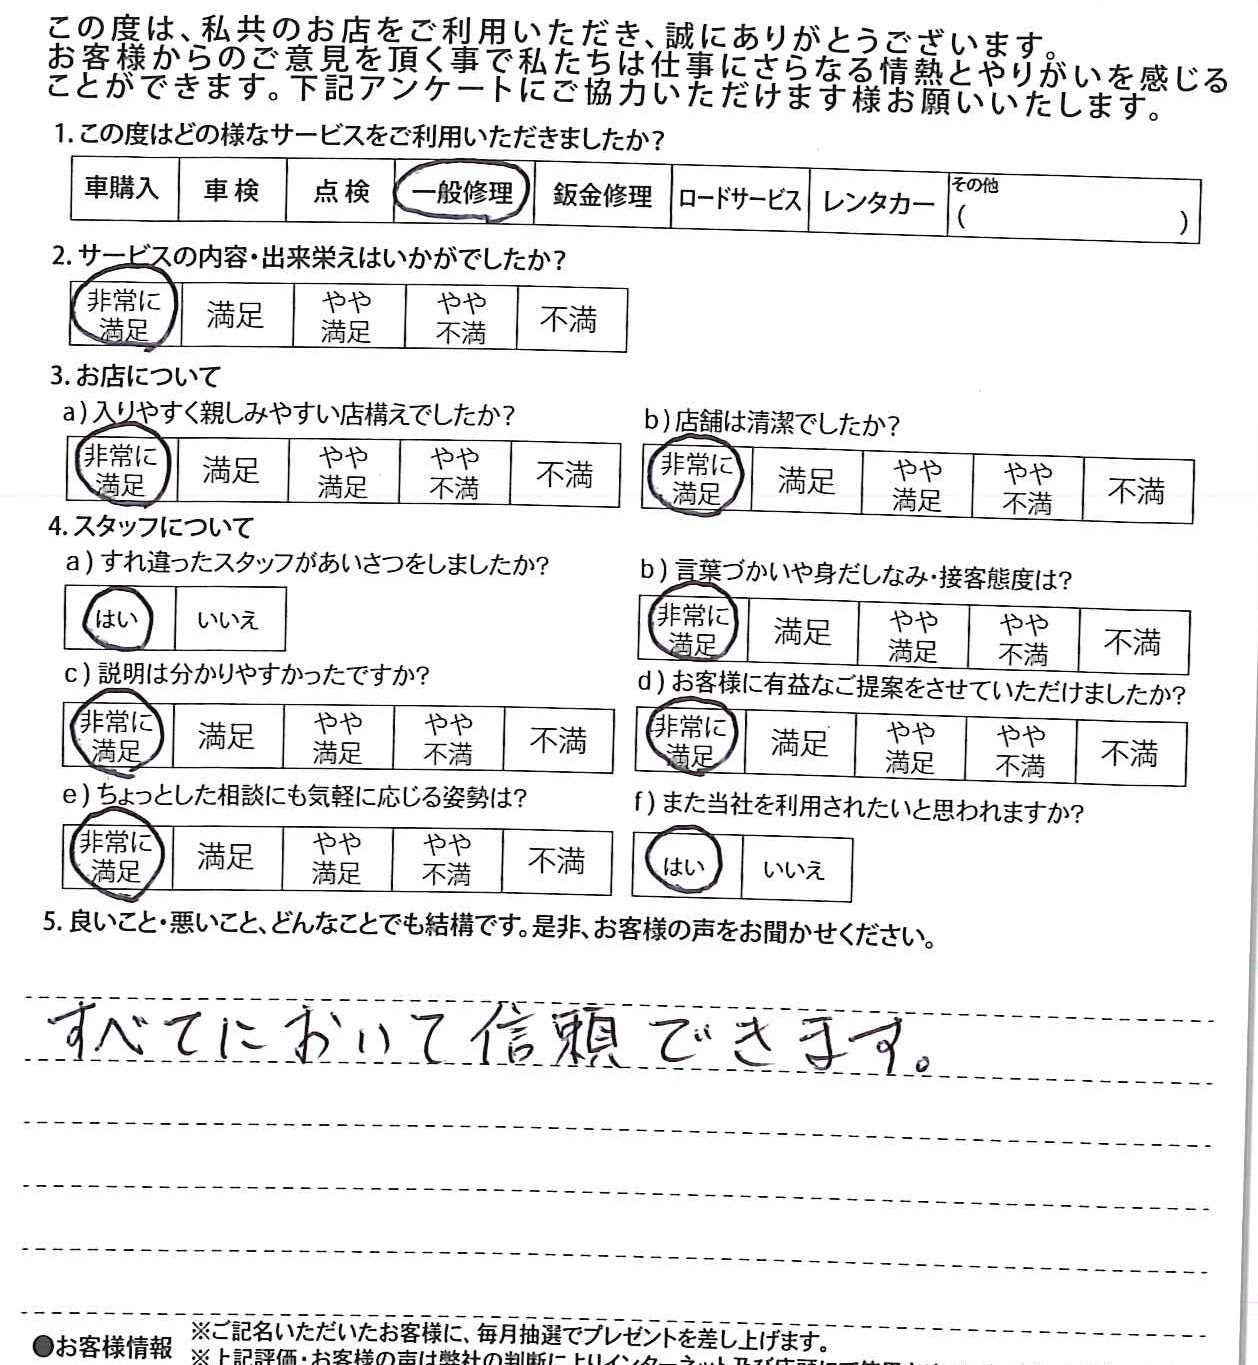 この度は、私共のお店をご利用いただき、誠にありがとうございます。
お客様からのご意見を頂く事で私たちは仕事にさらなる情熱とやりがいを感じる
ことができます。下記アンケートにご協力いただけます様お願いいたします。
1.この度はどの様なサービスをご利用いただきましたか?
車購入 車検 点検 一般修理 鈑金修理 ロードサービス レンタカー その他
( )
2.サービスの内容・出来栄えはいかがでしたか?
非常に満足 満足 やや満足 やや不満 不満
3.お店について
a)入りやすく親しみやすい店構えでしたか?
非常に満足 満足 やや満足 やや不満 不満
b)店舗は清潔でしたか?
非常に満足 満足 やや満足 やや不満 不満
4.スタッフについて
a)すれ違ったスタッフがあいさつをしましたか?
はい いいえ
b)言葉づかいや身だしなみ・接客態度は?
非常に満足 満足 やや満足 やや不満 不満
c)説明は分かりやすかったですか?
非常に満足 満足 やや満足 やや不満 不満
d)お客様に有益なご提案をさせていただけましたか?
非常に満足 満足 やや満足 やや不満 不満
e)ちょっとした相談にも気軽に応じる姿勢は?
非常に満足 満足 やや満足 やや不満 不満
f)また当社を利用されたいと思われますか?
はい いいえ
5.良いこと・悪いこと、どんなことでも結構です。是非、お客様の声をお聞かせください。
すべてにおいて信頼できます。
●お客様情報 ※ご記名いただいたお客様に、毎月抽選でプレゼントを差し上げます。
※上記評価・お客様の声は弊社の判断によりインターネット及び店頭にて使用